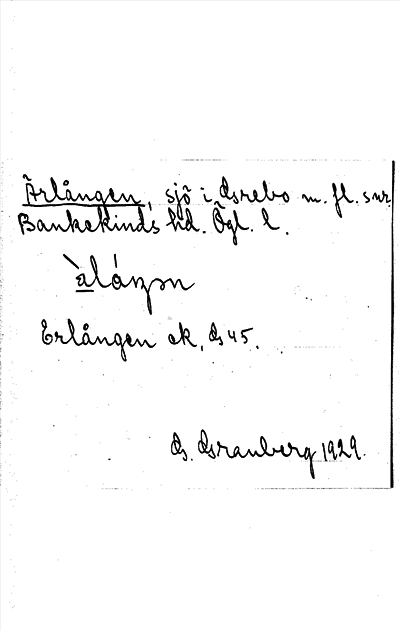 Ärlången, sjö i Grebo m. fl. snr
Bankekinds hd. Ögl. l.
Erlången ek, 45.
Granberg 1929.